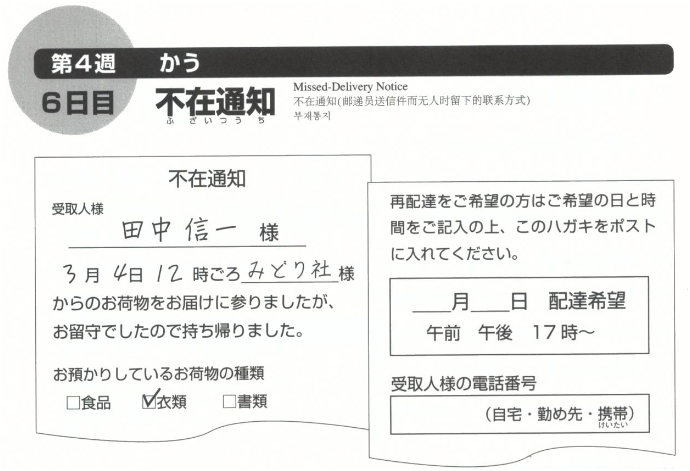 第4週 かう
6日目 不在通知
ふざいつうち
Missed-Delivery Notice
不在通知(邮递员送信件而无人时留下的联系方式)
부재통지
不在通知
受取人様
田中信一 様
3月4日12時ごろみどり社様
からのお荷物をお届けに参りましたが、
お留守でしたので持ち帰りました。
お預かりしているお荷物の種類
□食品 ☑衣類 □書類
再配達をご希望の方はご希望の日と時
間をご記入の上、このハガキをポスト
に入れてください。
___月___日 配達希望
午前 午後 17時〜
受取人様の電話番号
(自宅・勤め先・携帯)
けいたい